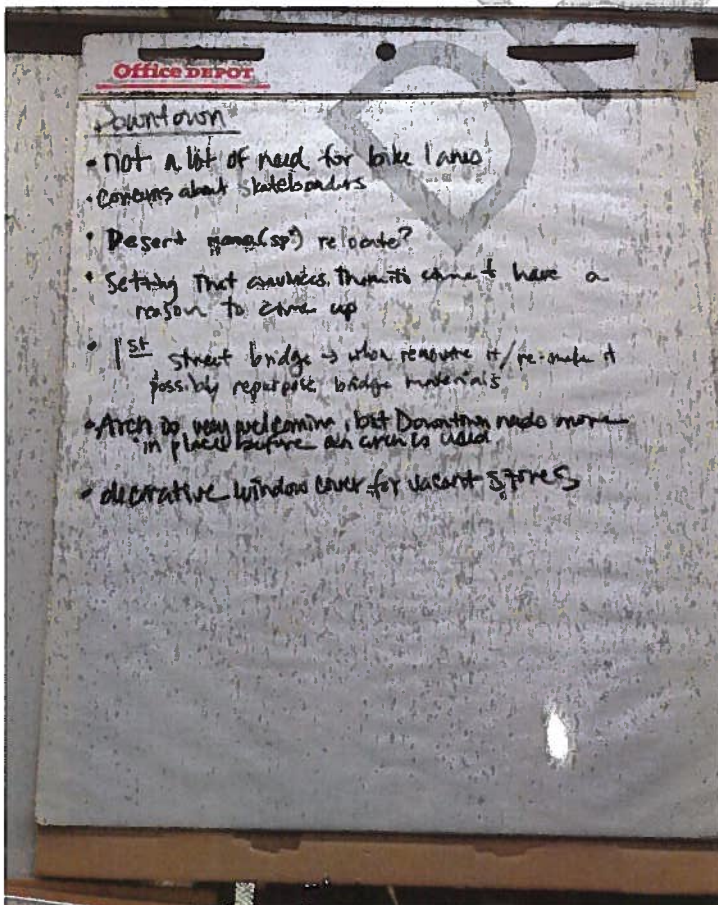 Office DEPOT
Downtown
• not a lot of need for bike lanes
• Concerns about skateboarders
• Desert (sp?) relocate?
• Setting that convinces them to come & have a
reason to come up
• 1st street bridge → when remove it/re-make it
possibly repurpose bridge materials
• Arch is very welcoming, but Downtown needs more
in place before an arch is used
• decorative window cover for vacant stores